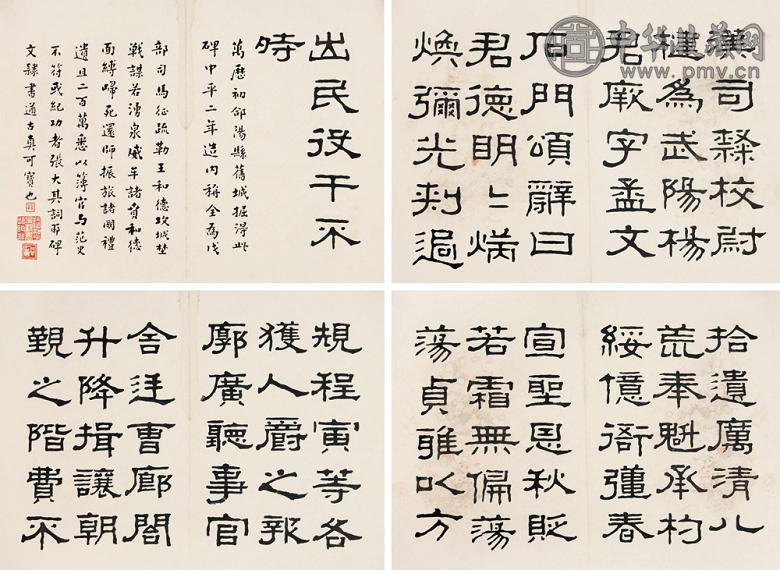 中华收藏网
www.pmv.cn
漢司隸校尉
楗為武陽楊
君厥字孟文
石門頌辭曰
君德明〻煥
煥彌光刺過
拾遺厲清八
荒奉魁承杓
綏億衙彊春
宣聖恩秋貶
若霜無偏蕩
蕩貞雅以方
規程寅等各
獲人爵之報
廓廣聽事官
舍廷曹廊閣
升降揖讓朝
覲之階費不
出民役干不
時
萬曆初郃陽縣舊城掘得此
碑中平二年造內稱全為戊
部司馬征疏勒王和德攻城埜
戰謀若湧泉威牟諸賁和德
面縛歸死還師振旅諸國禮
遺且二百萬悉以簿官与范史
不符或紀功者張大其詞耶碑
文隸書遒古真可寶也